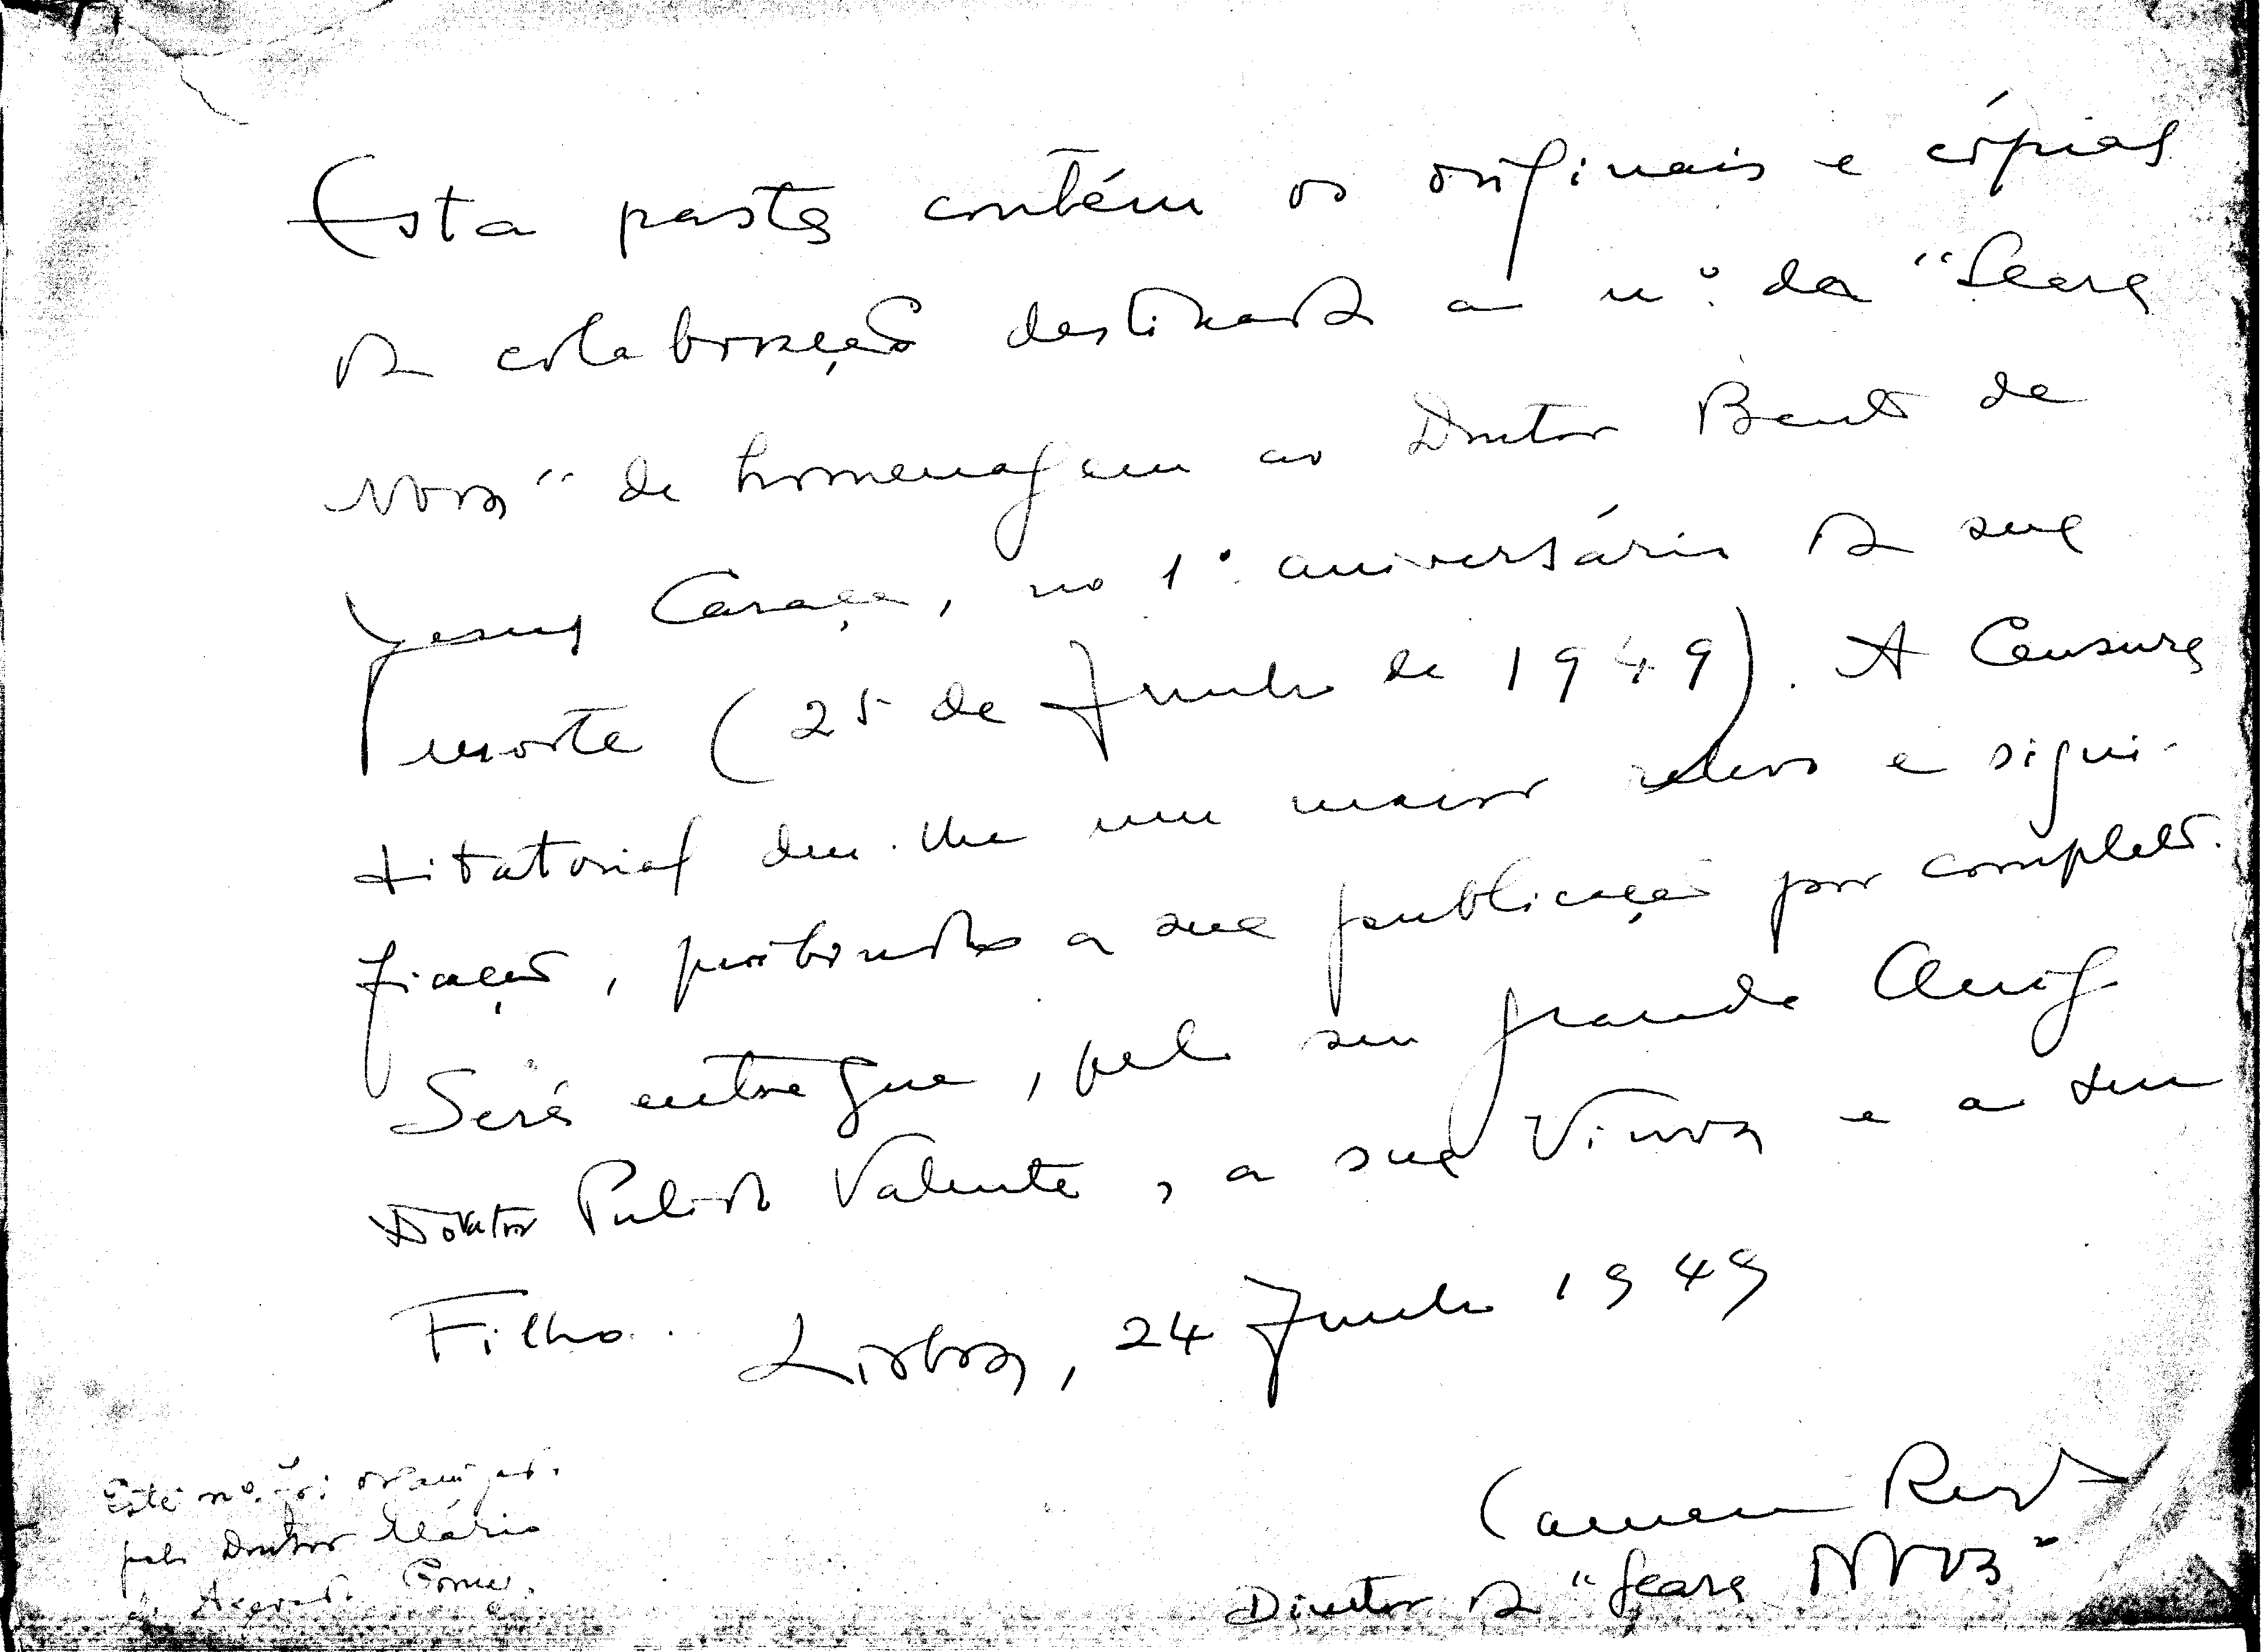 Esta pasta contém os originais e cópias
da colaboração destinada a n.º da "Seara
Nova" de homenagem ao Doutor Bento de
Jesus Caraça, no 1.º aniversário da sua
morte (25 de Junho de 1949). A Censura
ditatorial deu-lhe um maior relevo e signi-
ficação, proibindo a sua publicação por completo.
Será entregue, pelo seu grande Amigo
Doutor Pulido Valente, a sua Viuva e a seu
Filho. Lisboa, 24 Junho 1949
Camara Reys
Director da "Seara Nova"
Este n.º foi organizado
pelo Doutor Mário
de Azevedo Gomes.